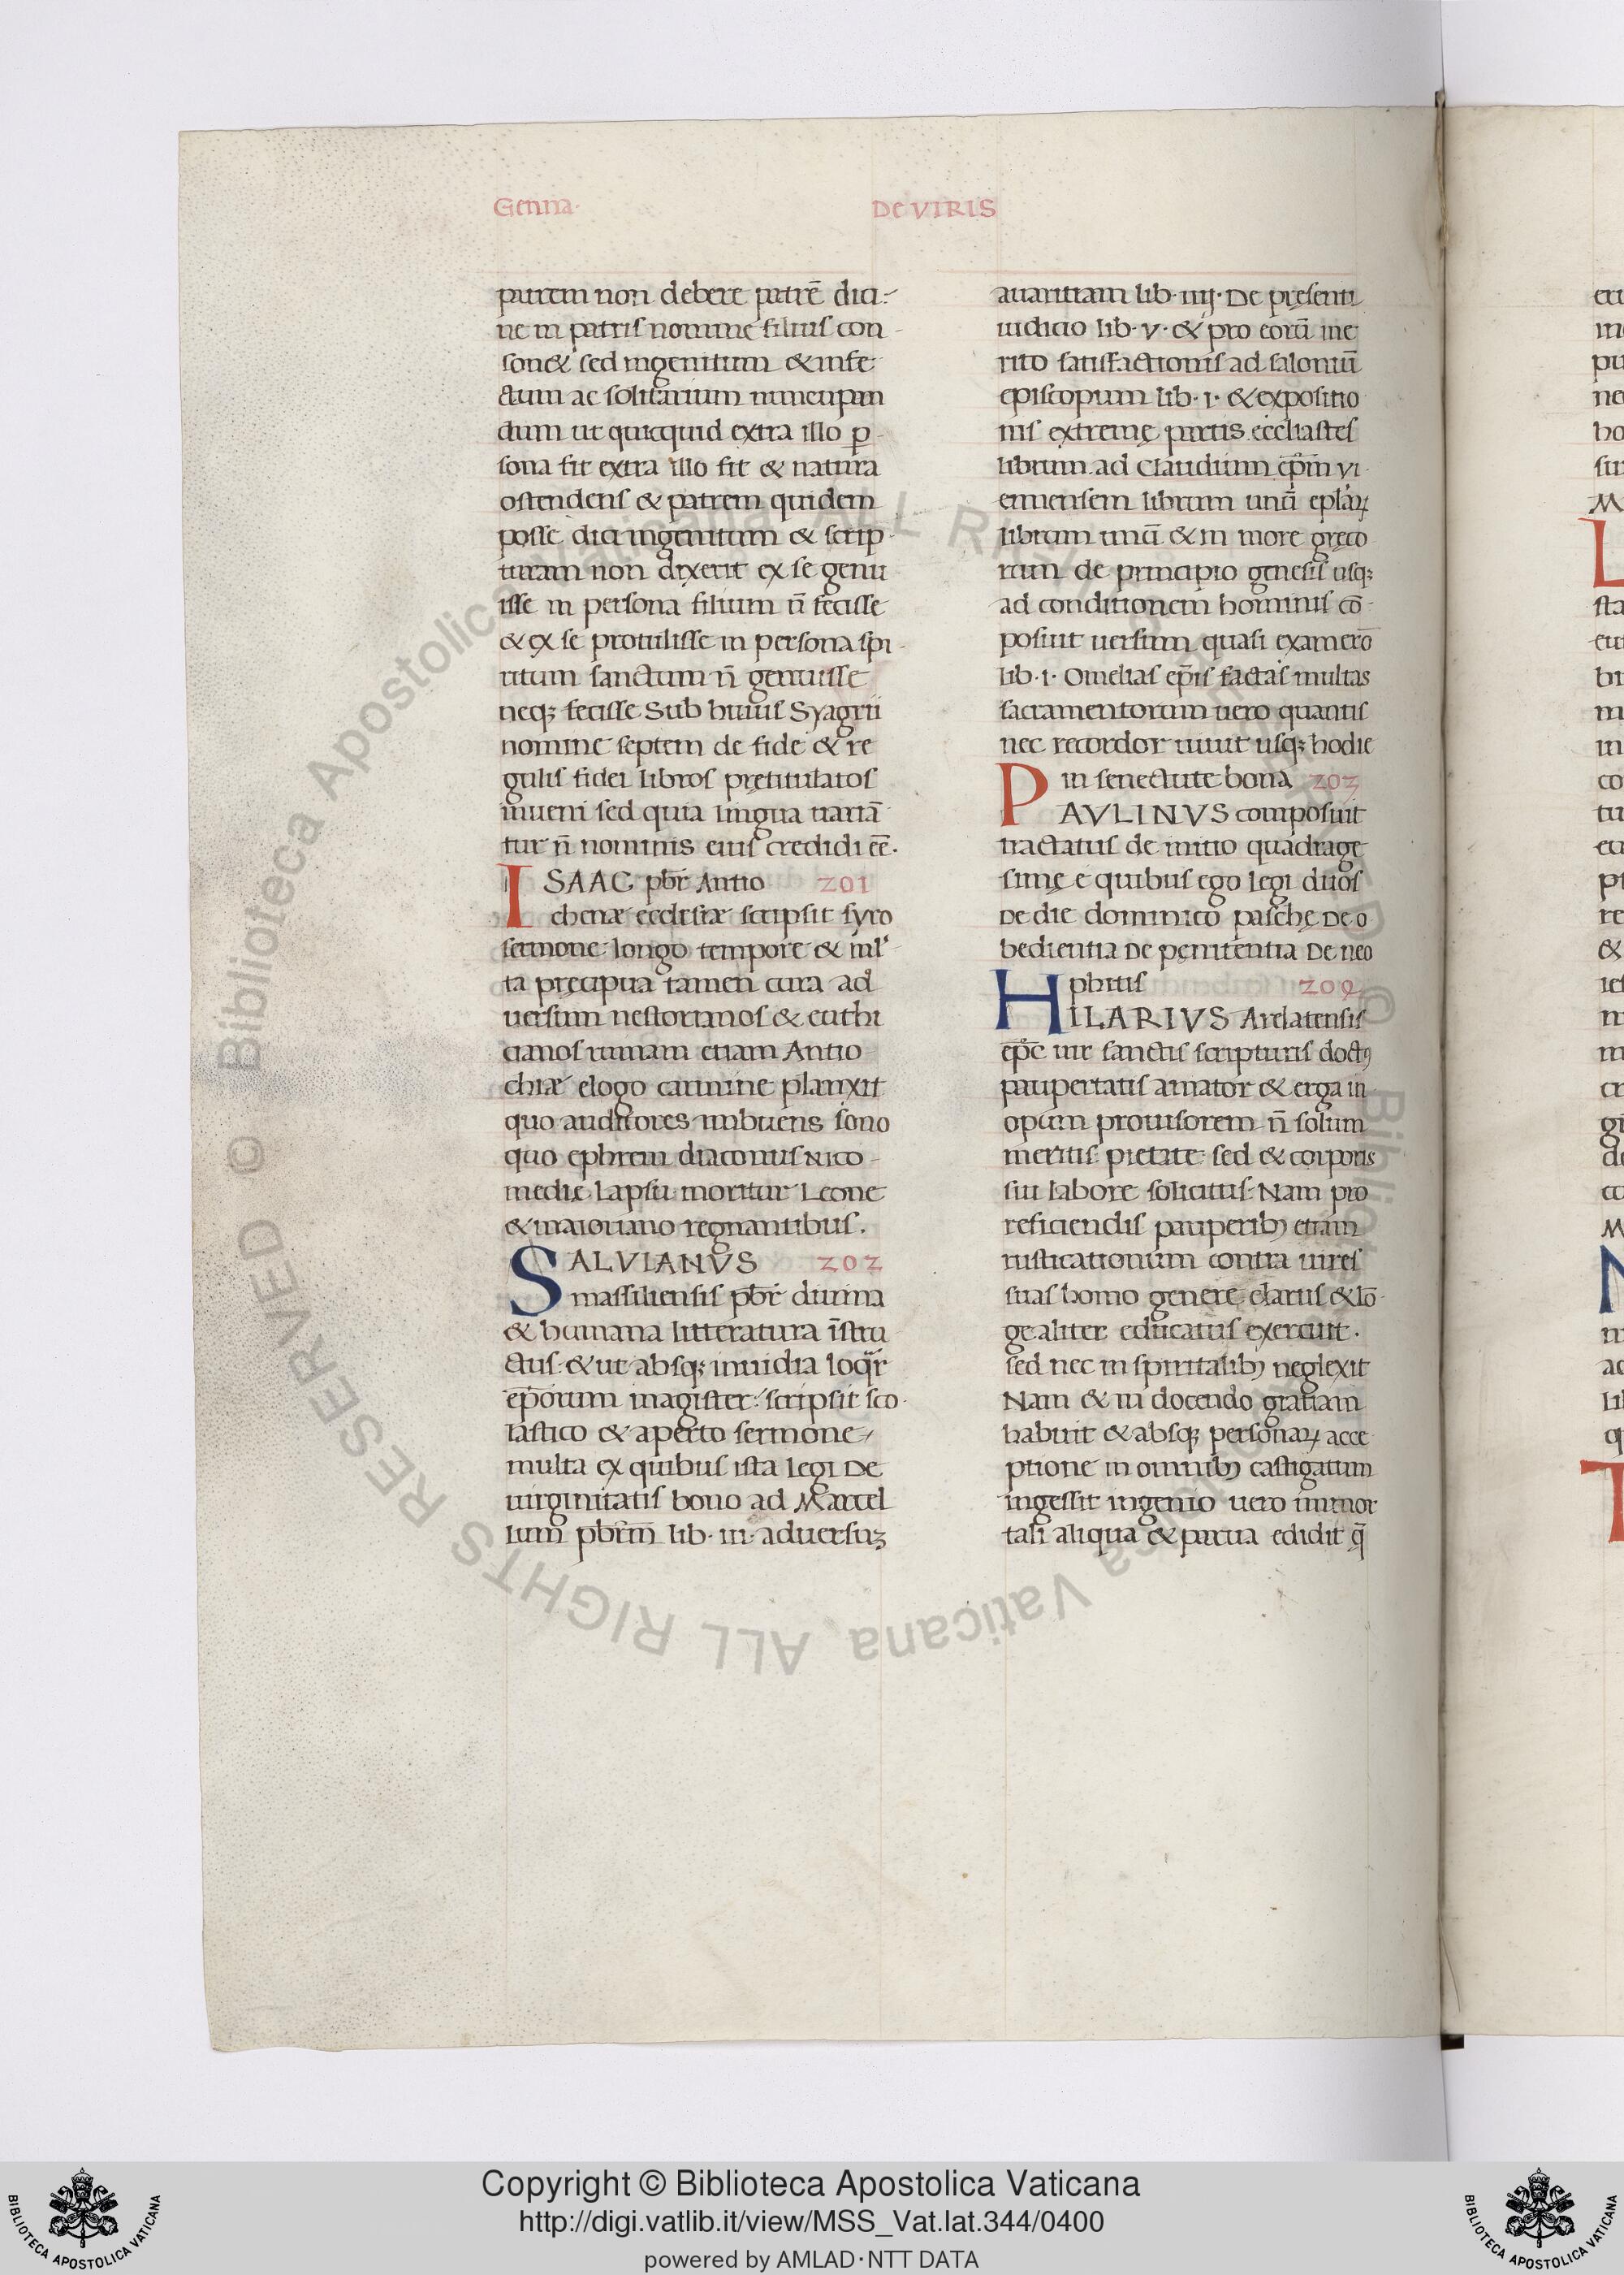 Genna·
De VIRIS
putem non debere patrē dici·
ne in patris nomine filius con
son& sed ingenitum & infe
ctum ac solitarium nuncupan
dum ut quicquid extra illo p̱
sona fit extra illo fit & natura
ostendens & patrem quidem
posse dici ingenitum & scrip
turam non dixerit ex se genu
isse in persona filium ñ fecisse
& ex se protulisse in persona spi
ritum sanctum ñ genuisse
neq; fecisse Sub huius Syagrii
nomine septem de fide & re
gulis fidei libros pretitulatos
inueni sed quia lingua uariā
tur ñ nominis eius credidi eē.
ISAAC pbr̄ Antio 201
chenæ ecclesiæ scripsit syro
sermone longo tempore & mul
ta precipua tamen cura ad
uersum nestorianos & euthi
cianos ruinam etiam Antio
chiæ elogo carmine planxit
quo auditores imbuens sono
quo ephrem diaconus Nico
medie lapsu moritur Leone
& maioriano regnantibus.
SALVIANVS 202
massiliensis pbr̄ diuina
& humana litteratura īstru
ctus· & ut absq; inuidia loqr̄
ep̄orum magister· scripsit sco
lastico & aperto sermone
multa ex quibus ista legi De
uirginitatis bono ad Marcel
lum pbrm̄ lib· iii· aduersuz
auaritiam lib· iiij· De presenti
iudicio lib· v· & pro eorū me
rito satisfactionis ad saloniū
episcopum lib· i· & expositio
nis extreme partis ecclesiastes
librum ad Claudium ep̄m vi
ennensem librum unū eplaꝝ
librum unū & in more greco
rum de principio genesis usq;
ad conditionem hominis cō
posuit uersum quasi examerō
lib· i· Omelias ep̄is factas multas
sacramentorum uero quantis
nec recordor uiuit usq; hodie
in senectute bona 203
PAVLINVS composuit
tractatus de initio quadrage
sime e quibus ego legi duos
De die dominico pasche De o
bedientia De penitentia De neo
phitis 204
HILARIVS Arelatensis
ep̄c uir sanctis scripturis doctꝰ
paupertatis amator & erga in
opum prouisorem ñ solum
mentis pietate sed & corporis
sui labore solicitus· Nam pro
reficiendis pauperibꝫ etiam
rusticationum contra uires
suas homo genere clarus & lō
ge aliter educatus exercuit.
sed nec in spiritalibꝫ neglexit
Nam & in docendo gratiam
habuit & absq; personaꝝ acce
ptione in omnibꝫ castigatum
ingessit ingenio uero immor
tali aliqua & parua edidit q̄
Copyright © Biblioteca Apostolica Vaticana
http://digi.vatlib.it/view/MSS_Vat.lat.344/0400
powered by AMLAD·NTT DATA